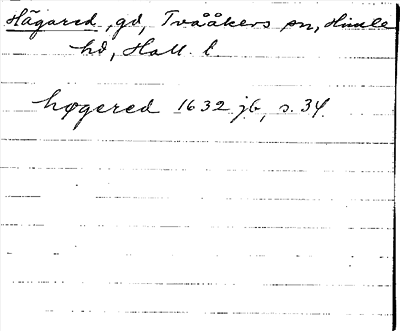 Hägared, gd, Tvååkers sn, Himle
hd, Hall. l.
høgered 1632 jb, s. 34.